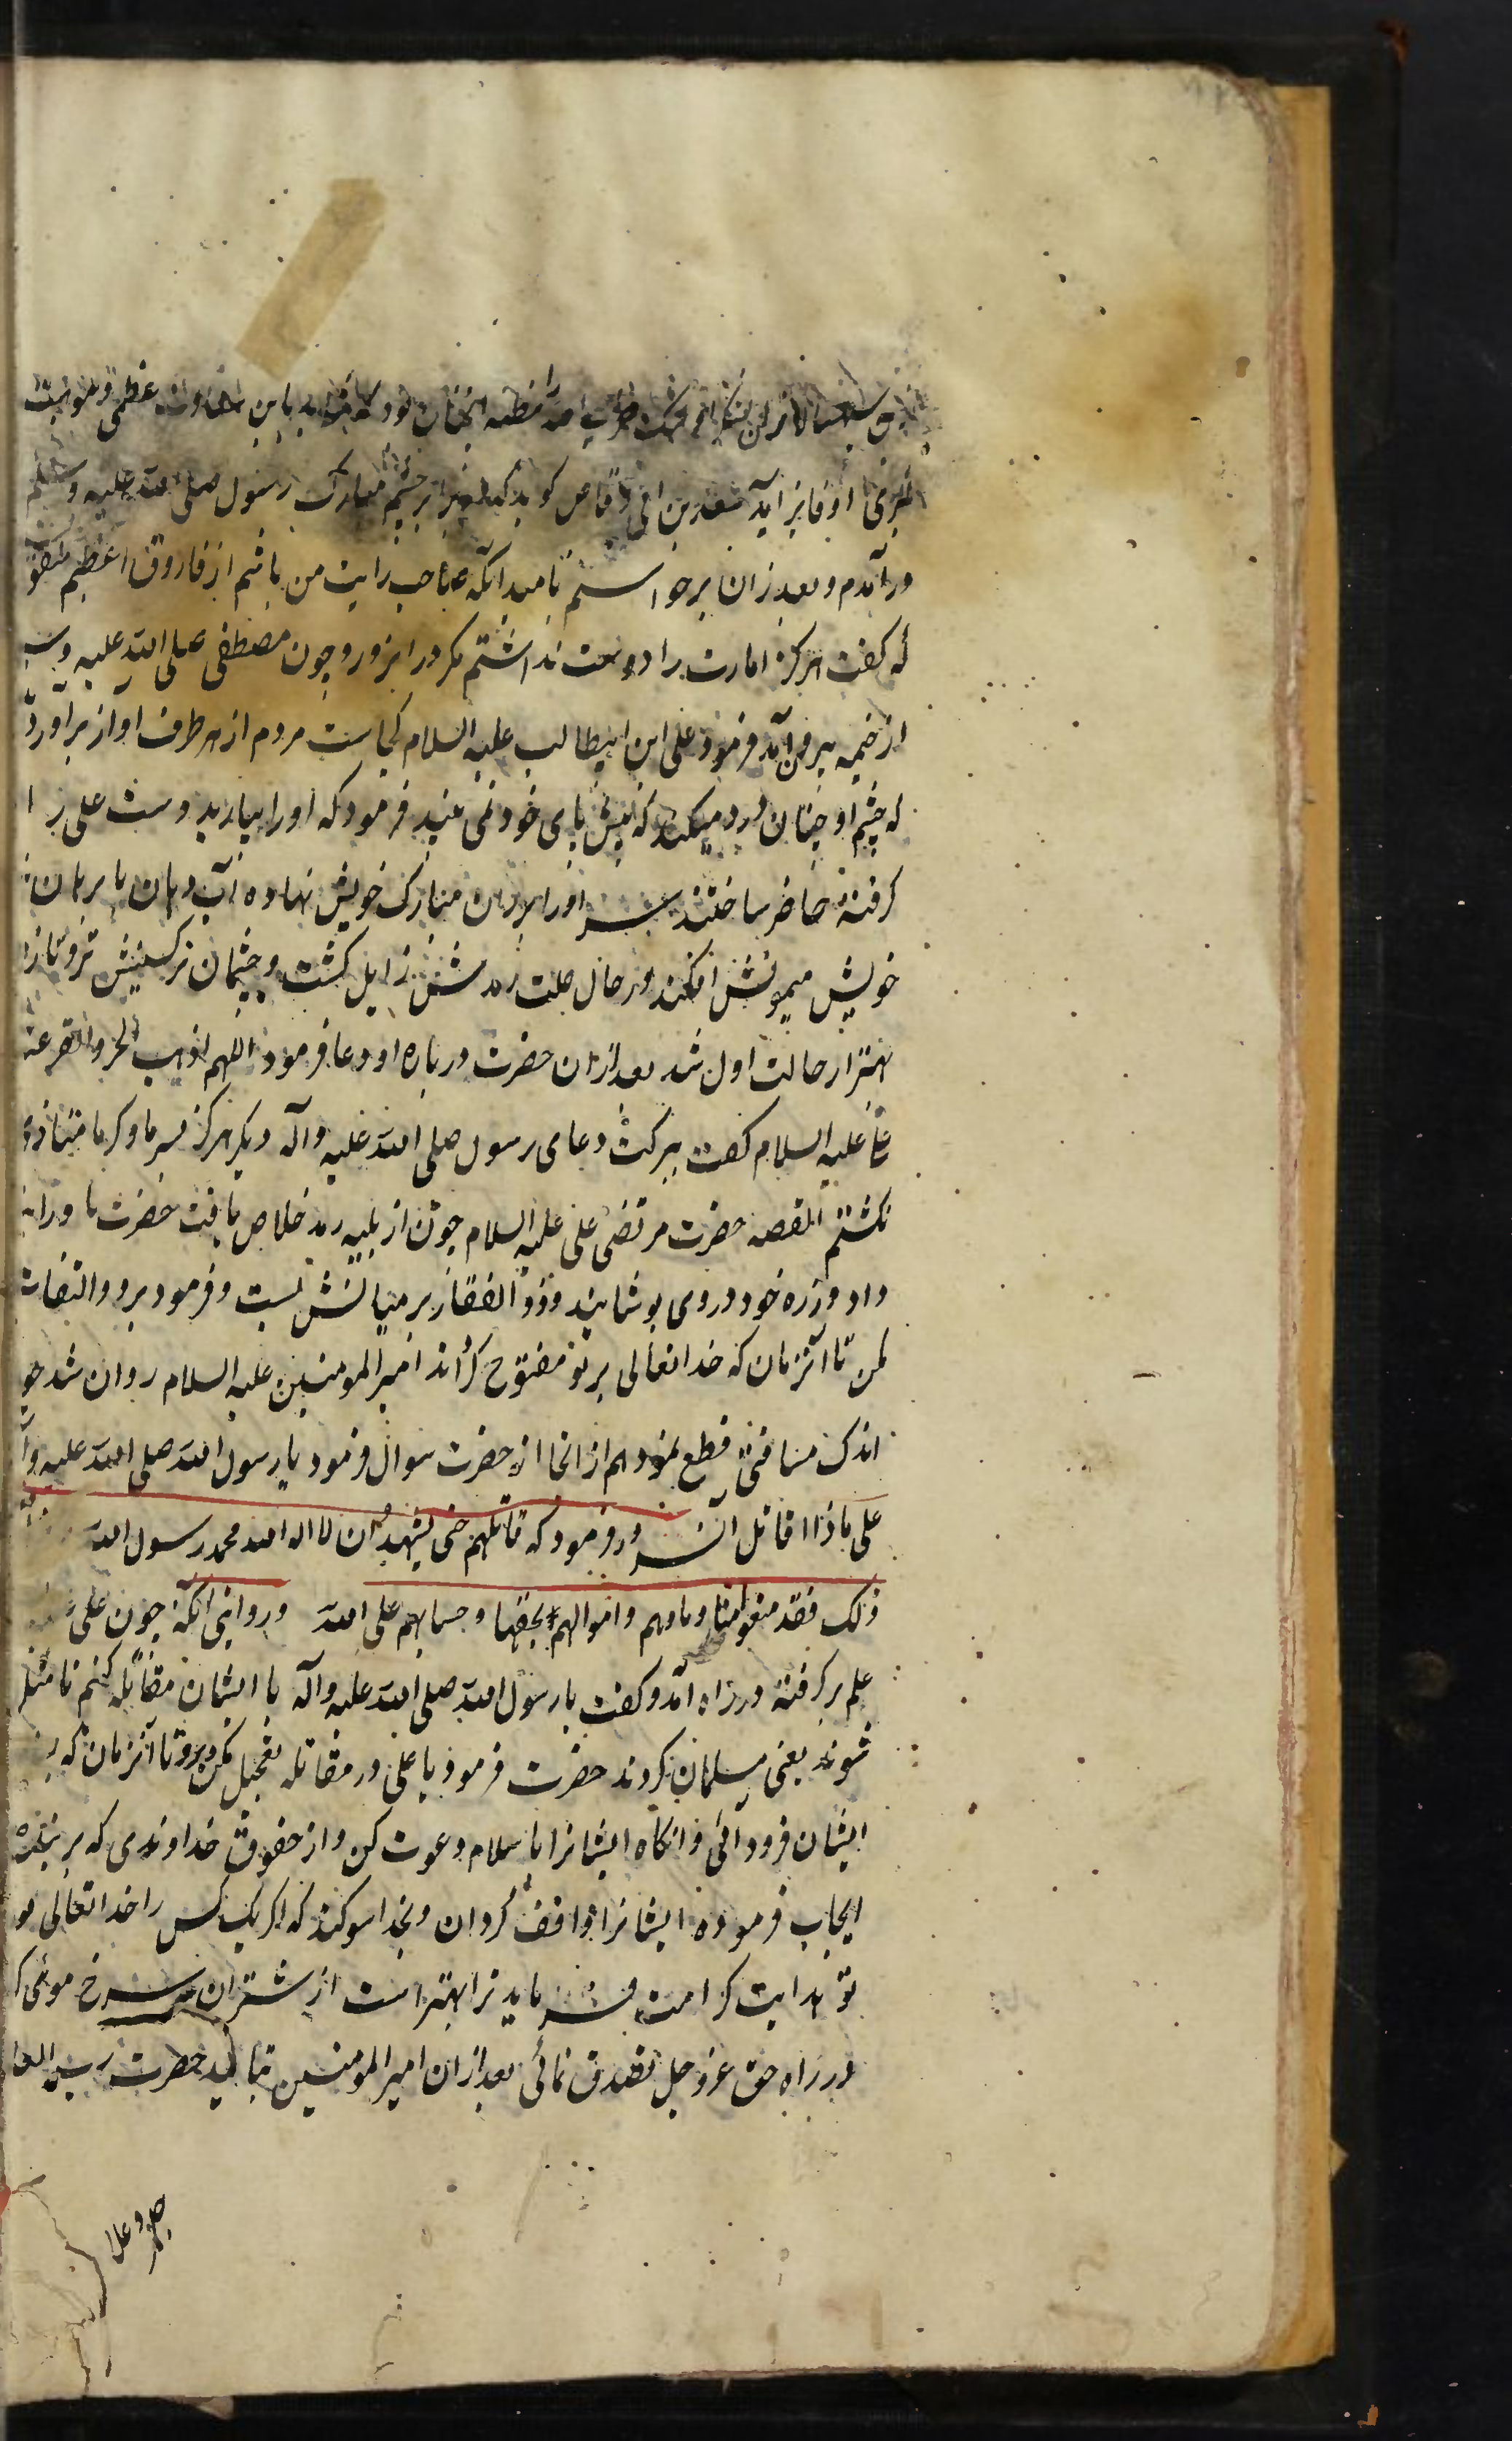 او فایز آید سعد بن ابی وقاص کوید که در برابر چشم مبارک رسول صلی الله علیه وسلم
درآمدم و بعد زان برخواستم بامید آنکه صاحب رایت من باشم از فاروق اعظم منقو
که کفت هرکز امارت را دوست نداشتم مکر در انروز و چون مصطفی صلی الله علیه وس
از خیمه بیرون آمد فرمود علی ابن ابیطالب علیه السلام کجاست مردم از هر طرف اواز براورد
که چشم او چنان درد میکند که پیش پای خود نمی بیند فرمود که اورا بیارید دست علی را
کرفته حاضر ساختند سر اورا بر ران مبارک خویش نهاده آب دهان بابرهان
خویش میمونش افکند در حال علت رمدش زایل کشت و چشمان نرکسینش تروتازه
بهتر از حالت اول شد بعد ازان حضرت درباره او دعا فرمود اللهم اذهب الحر والقر عنه
علیه السلام کفت ببرکت دعای رسول صلی الله علیه وآله دیکر هرکز بسرما وکرما متاذی
نکشتم القصه حضرت مرتضی علی علیه السلام چون از بلیه رمد خلاص یافت حضرت باو را
داد و زره خود در وی پوشانید و ذو الفقار بر میانش بست و فرمود برو والتفات
مکن تا آنزمان که خدا تعالی بر تو مفتوح کرداند امیر المومنین علیه السلام روان شد چو
اندک مسافتی قطع نمود هم از انجا از حضرت سوال فرمود یا رسول الله صلی الله علیه وآ
علی ماذا اقاتل آنسرور فرمود که قاتلهم حتی یشهد ان لا اله الله محمد رسول الله
ذلک فقد منعوا منا دماءهم واموالهم بحقها وحسابهم علی الله وروایتی آنکه چون علی
علم بر کرفته در راه آمد و کفت یا رسول الله صلی الله علیه وآله با ایشان مقاتله کنم تا مثل
شوند یعنی مسلمان کردند حضرت فرمود یا علی در مقاتله تعجیل مکن و برو تا آنزمان که
ایشان فرود آئی و انکاه ایشانرا باسلام دعوت کن و از حقوق خداوندی که بر بنده
ایجاب فرموده ایشانرا واقف کردان و بخدا سوکند که اکر یک کس را خدا تعالی بو
تو هدایت کرامت فرماید ترا بهتر است از شتران سرخ موئی
در راه حق عز وجل تصدق نمائی بعد ازان امیر المومنین بتائید حضرت رب العا
جل وعلا